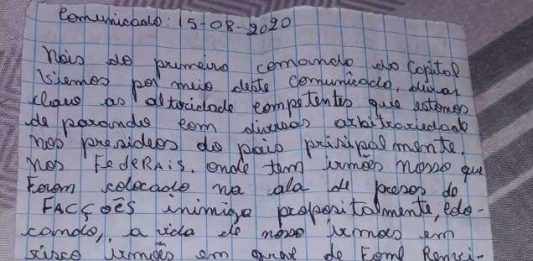 Comunicado: 15-08-2020
Nois do primeiro comando do Capital
Viemos por meio deste comunicado, deixar
claro as altoridade competentes que estamos
de parando com diversas arbitrariedade
nos presideos do pais prisipalmente
nos FedeRAis, onde tem irmões nosso que
Foram colocado na ala de presos de
FACÇOES inimiga propositalmente, colo-
cando, a vida de nosso irmãos em
risco irmões em greve de Fome Reivi-